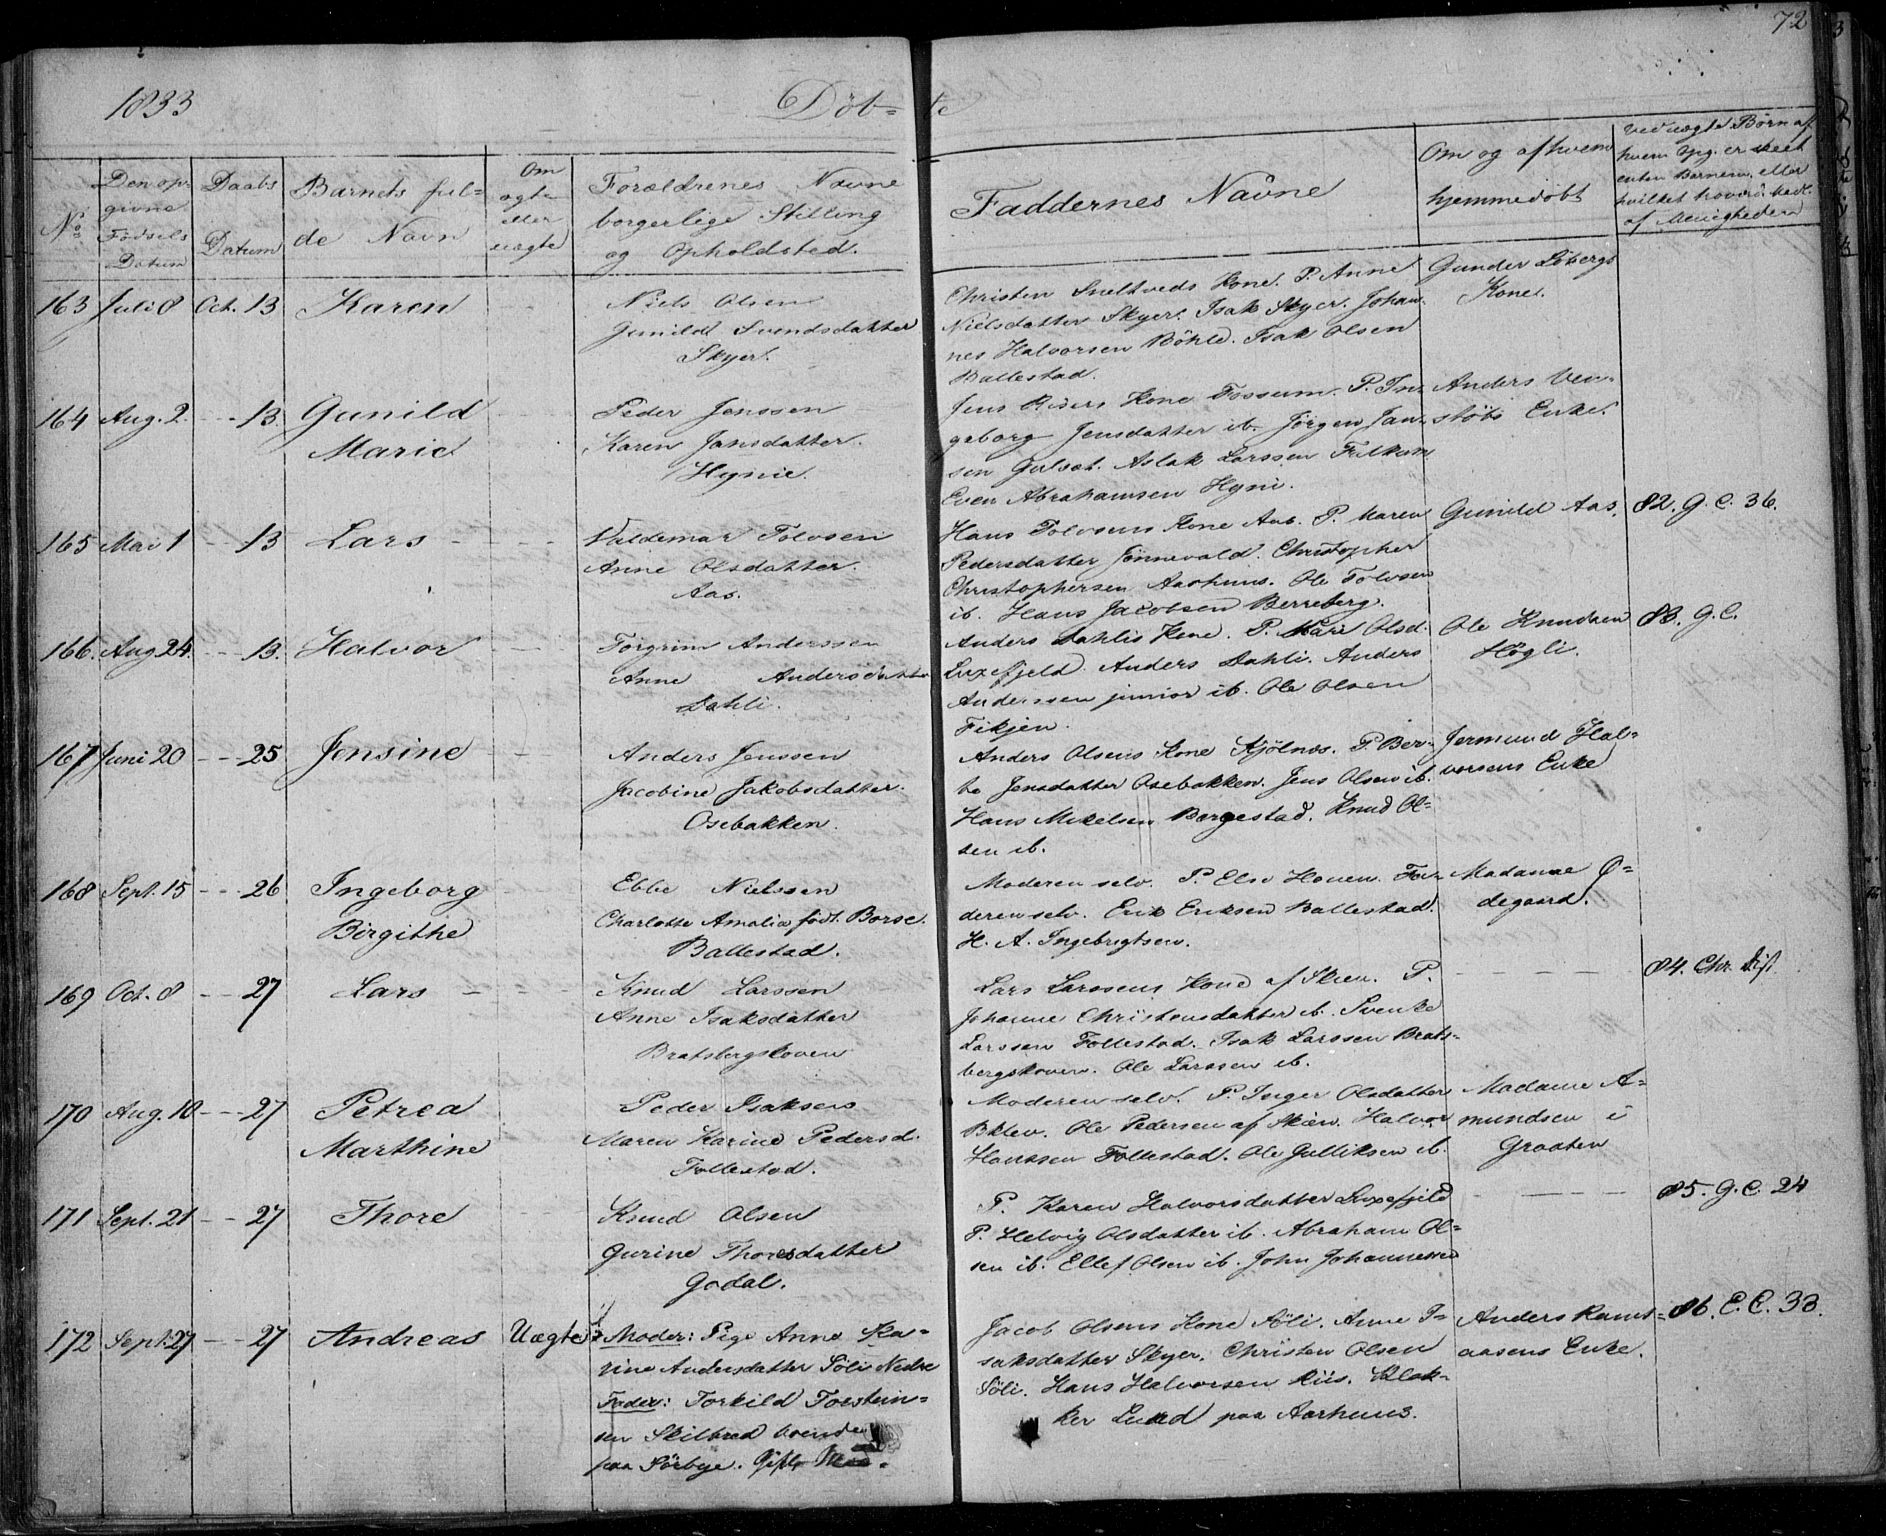 72
1833
Döbte
No
Den opgivne Födsels Datum
Daabs Datum
Barnets fulde Navn
Om ægte eller uægte
Forældrenes Navne borgerlige Stilling og Opholdsted.
Faddernes Navne
Om og af hvem hjemmedöbt
Ved uægte Börn af hvem Opg. er skeet enten Barnemo. eller hvilket hoved af Menigheden
163 Juli 8 Oct. 13 Karen
Niels Olsen
Gunild Svendsdatter
Skyer.
Christen Sneltveds Kone. P. Anne
Nielsdatter Skyer. Isak Skyer. Johan-
nes Halvorsen Böhle. Isak Olsen
Ballestad.
Gunder Löbergs
Kone.
164 Aug. 2. - - 13. Gunild
Marie
Peder Jenssen
Karen Jansdatter.
Hynie.
Jens Kone Fossum. P. In-
geborg Jensdatter ib. Jörgen Jan-
sen Gulset. Aslak Larssen
Even Abrahamsen Hyni.
Anders Ven-
stöbs Enke.
165 Mai 1 - - 13 Lars
Valdemar Tolvsen
Anne Olsdatter.
Aas.
Hans Tolvsens Kone Aas. P. Maren
Pedersdatter Jönnevald. Christopher
Christophersen Aarhuus. Ole Tolvsen
ib. Hans Jacobsen Berreberg.
Gunild Aas.
82. G. C. 36.
166. Aug 24. - - 13. Halvor
Torgrim Anderssen
Anne Andersdatter
Dahli.
Anders Dahlis Kone. P. Mari Olsd.
Luxefjeld. Anders Dahli. Anders
Anderssen junior ib. Ole Olsen
Fikjen.
Ole Knudsen
Högli.
83. G. C.
167 Juni 20 - - 25 Jensine
Anders Jenssen
Jacobine Jakobsdatter.
Osebakken.
Anders Olsens Kone Kjölnæs. P. Ber-
te Jensdatter Osebakken. Jens Olsen ib.
Hans Mikelsen Borgestad. Knud Ol-
sen ib.
Jermund Hal-
vorsens Enke
168 Sept. 15 - - 26 Ingeborg
Birgithe
Ebbe Nielssen
Charlotte Amalia födt Borse.
Ballestad.
Moderen selv. P. Else Houen. Fa-
deren selv. Erik Eriksen Ballestad.
H. A. Ingebrigtsen.
Madame Ö-
degaard.
169 Oct. 8 - - 27 Lars
Knud Larssen
Anne Isaksdatter
Bratsbergskoven
Lars Larssens Kone af Skien. P.
Johanne Christensdatter ib. Svenke
Larssen Follestad. Isak Larssen Brats-
bergskoven. Ole Larssen ib.
84. Chr.
170 Aug. 10 - - 27 Petrea
Marthine
Peder Isaksen
Maren Karine Pedersd.
Follestad.
Moderen selv. P. Inger Olsdatter
Bklev. Ole Pedersen af Skien. Halvor
Hanssen Follestad. Ole Gulliksen ib.
Madame A-
mundsen i
Graaten
171 Sept. 21 - - 27 Thore
Knud Olsen
Gurine Thoresdatter
Godal.
P. Karen Halvorsdatter Luxefjeld
P. Helvig Olsdatter ib. Abraham Ol-
sen ib. Ellef Olsen ib. John Johannessen
85. G. C. 24
172 Sept. 27 - - 27 Andreas Uægte
Moder: Pige Anne Ka-
rine Andersdatter Söli Nedre
Fader: Torkild Torstein-
sen Skilbred boende
paa Sörbye. Gift Mand.
Jacob Olsens Kone Söli. Anne I-
saksdatter Skyer. Christen Olsen
Söli. Hans Halvorsen Riis. Klok-
ker Lund paa Aarhuus.
Anders Rams-
aasens Enke.
86. C. C. 33.